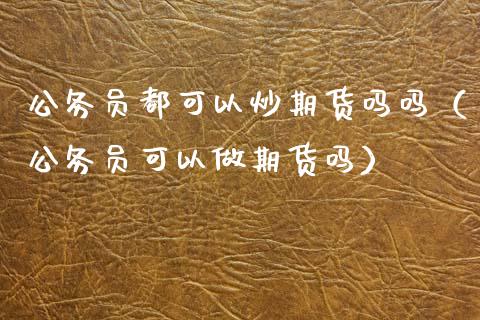 公务员都可以炒期货吗吗（
公务员可以做期货吗）